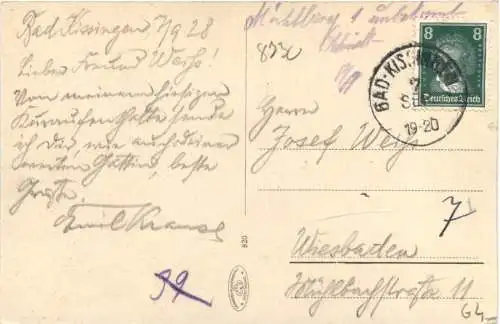 Bad Kissingen 7/9 28
Lieber Freund Weiß!
Von meinem hiesigen
Kuraufenthalte sende
ich Dir, wie auch deiner
werten Gattin, beste
Grüße.
Emil Krause
Mühlberg 1 unbekannt
8
Deutsches Reich
BAD-KISSINGEN
19-20
Herrn
Josef Weiß
7
Wiesbaden
Mühlbachstraße 11
64-
99
820